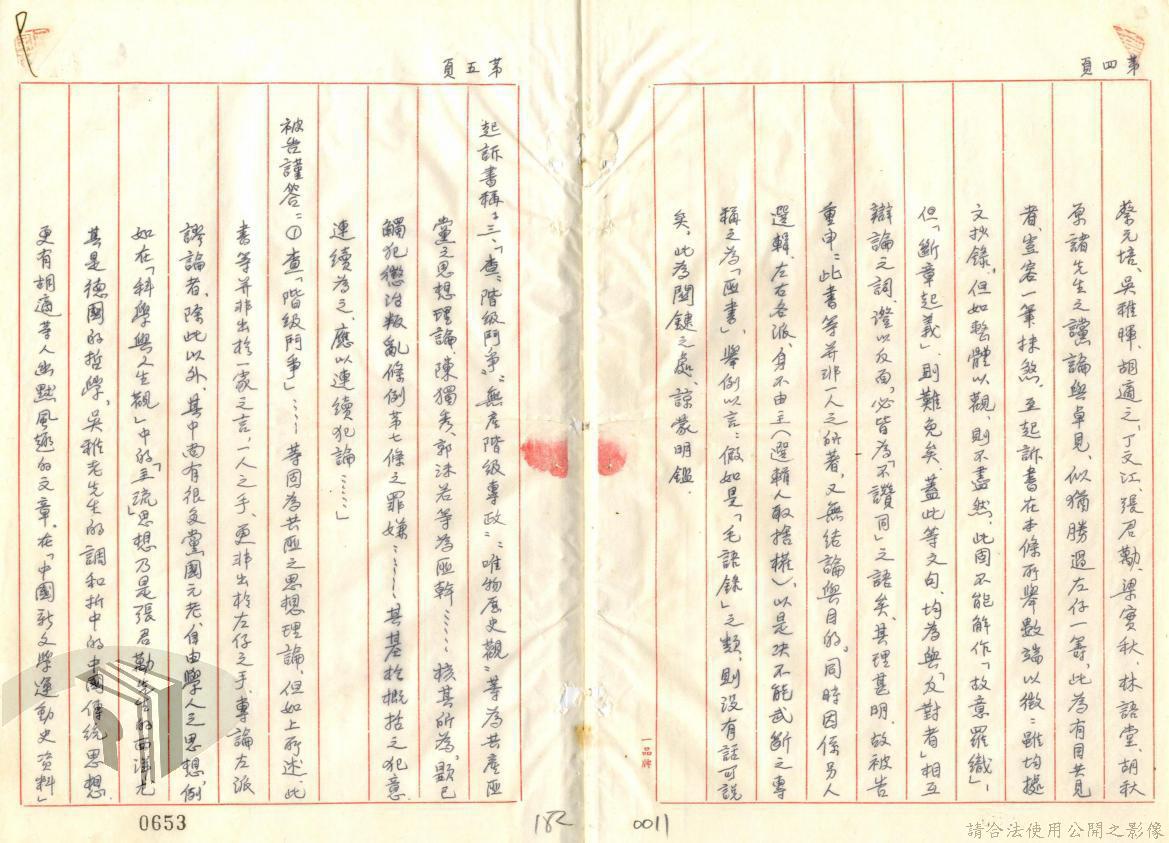 第四頁
蔡元培、吳稚暉、胡適之、丁文江、張君勱、梁實秋、林語堂、胡秋
原諸先生之讜論與卓見、似猶勝過左仔一籌、此為有目共見
者、豈容一筆抹煞。至起訴書在本條所舉數端以徵：雖均據
文抄錄、但如整體以觀、則不盡然、此固不能解作「故意羅織」、
但「斷章起義」、則難免矣、蓋此等文句、均為與「反對者」相互
辯論之詞、證以反面、必皆為「不讚同」之語矣、其理甚明、故被告
重申：此書等并非一人之所著、又無結論與目的。同時因係另人
選輯、左右各派、身不由主（選輯人取捨權）、以是決不能武斷之專
稱之為「匪書」、舉例以言：假如是「毛語錄」之類、則沒有話可說
矣、此為關鍵之處、諒蒙明鑑.
一品牌
0011
第五頁
起訴書稱：三、「查：階級鬥爭：無產階級專政：唯物歷史觀：等為共產匪
黨之思想理論、陳獨秀、郭沫若等為匪幹……核其所為、顯已
觸犯懲治叛亂條例第七條之罪嫌……其基於概括之犯意
連續為之、應以連續犯論……」
被告謹答：①查「階級鬥爭」……等固為共匪之思想理論、但如上所述、此
書等并非出於一家之言，一人之手、更非出於左仔之手、專論左派
謬論者、除此以外、其中尚有很多黨國元老、自由學人之思想、例
如在「科學與人生觀」中的「主流」思想乃是張君勱先生的西洋尤
其是德國的哲學、吳稚老先生的調和折中的中國傳統思想.
更有胡適等人幽默風趣的文章。在「中國新文學運動史資料」
0653
182
請合法使用公開之影像